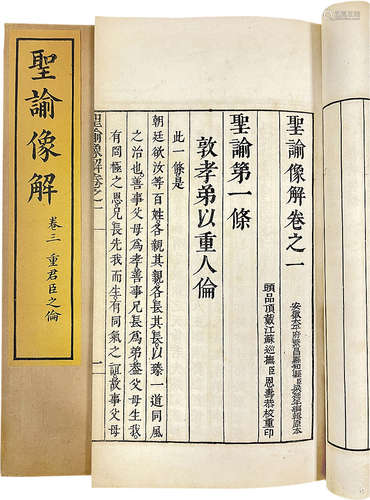 聖諭像解
卷三 重君臣之倫
聖諭像解卷之一
頭品頂戴江蘇巡撫臣恩壽恭校重印
聖諭第一條
敦孝弟以重人倫
此一條是
朝廷欲汝等百姓各親其親各長其長以臻一道同風
之治也善事父母爲孝善事兄長爲弟蓋父母
有罔極之恩兄長先我而生有同氣之誼故事父母